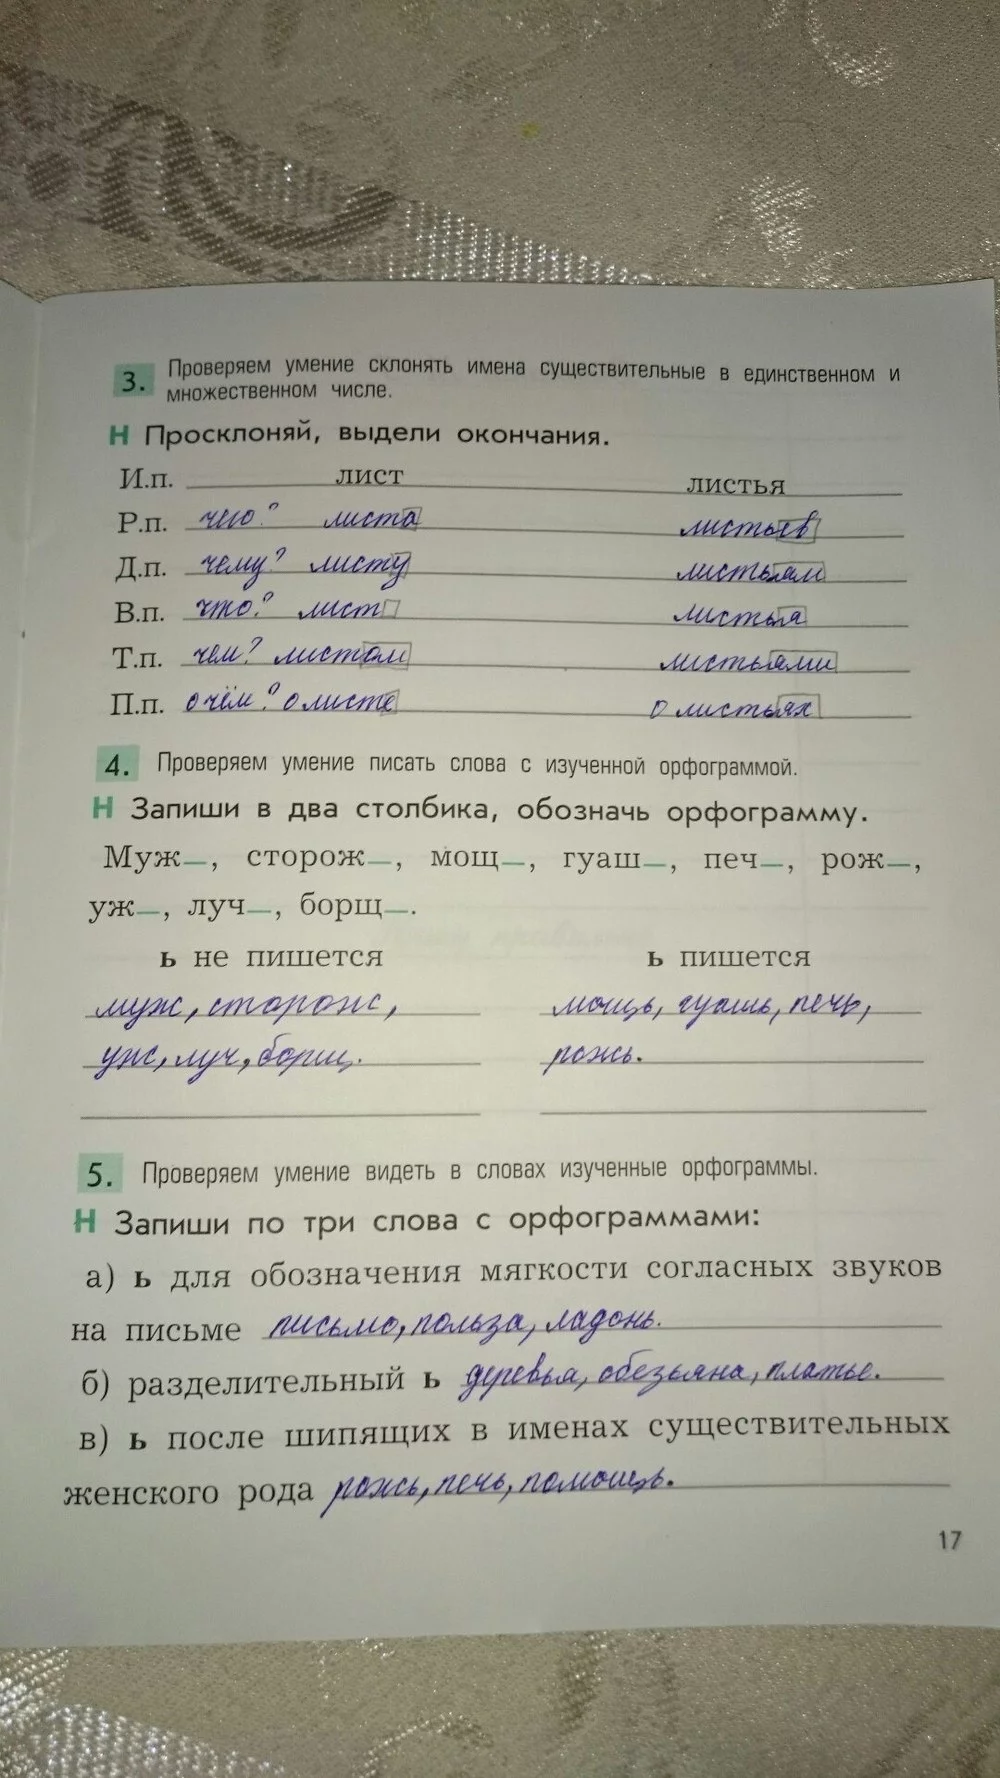 3. Проверяем умение склонять имена существительные в единственном и
множественном числе.
Н Просклоняй, выдели окончания.
И.п. лист листья
Р.п. чего? листа листьев
Д.п. чему? листу листьям
В.п. что? лист листья
Т.п. чем? листом листьями
П.п. о чём? о листе о листьях
4. Проверяем умение писать слова с изученной орфограммой.
Н Запиши в два столбика, обозначь орфограмму.
Муж_, сторож_, мощ_, гуаш_, печ_, рож_,
уж_, луч_, борщ_.
ь не пишется ь пишется
муж, сторож, мощь, гуашь, печь,
уж, луч, борщ. рожь.
5. Проверяем умение видеть в словах изученные орфограммы.
Н Запиши по три слова с орфограммами:
а) ь для обозначения мягкости согласных звуков
на письме письмо, польза, ладонь.
б) разделительный ь деревья, обезьяна, платье.
в) ь после шипящих в именах существительных
женского рода рожь, печь, помощь.
17